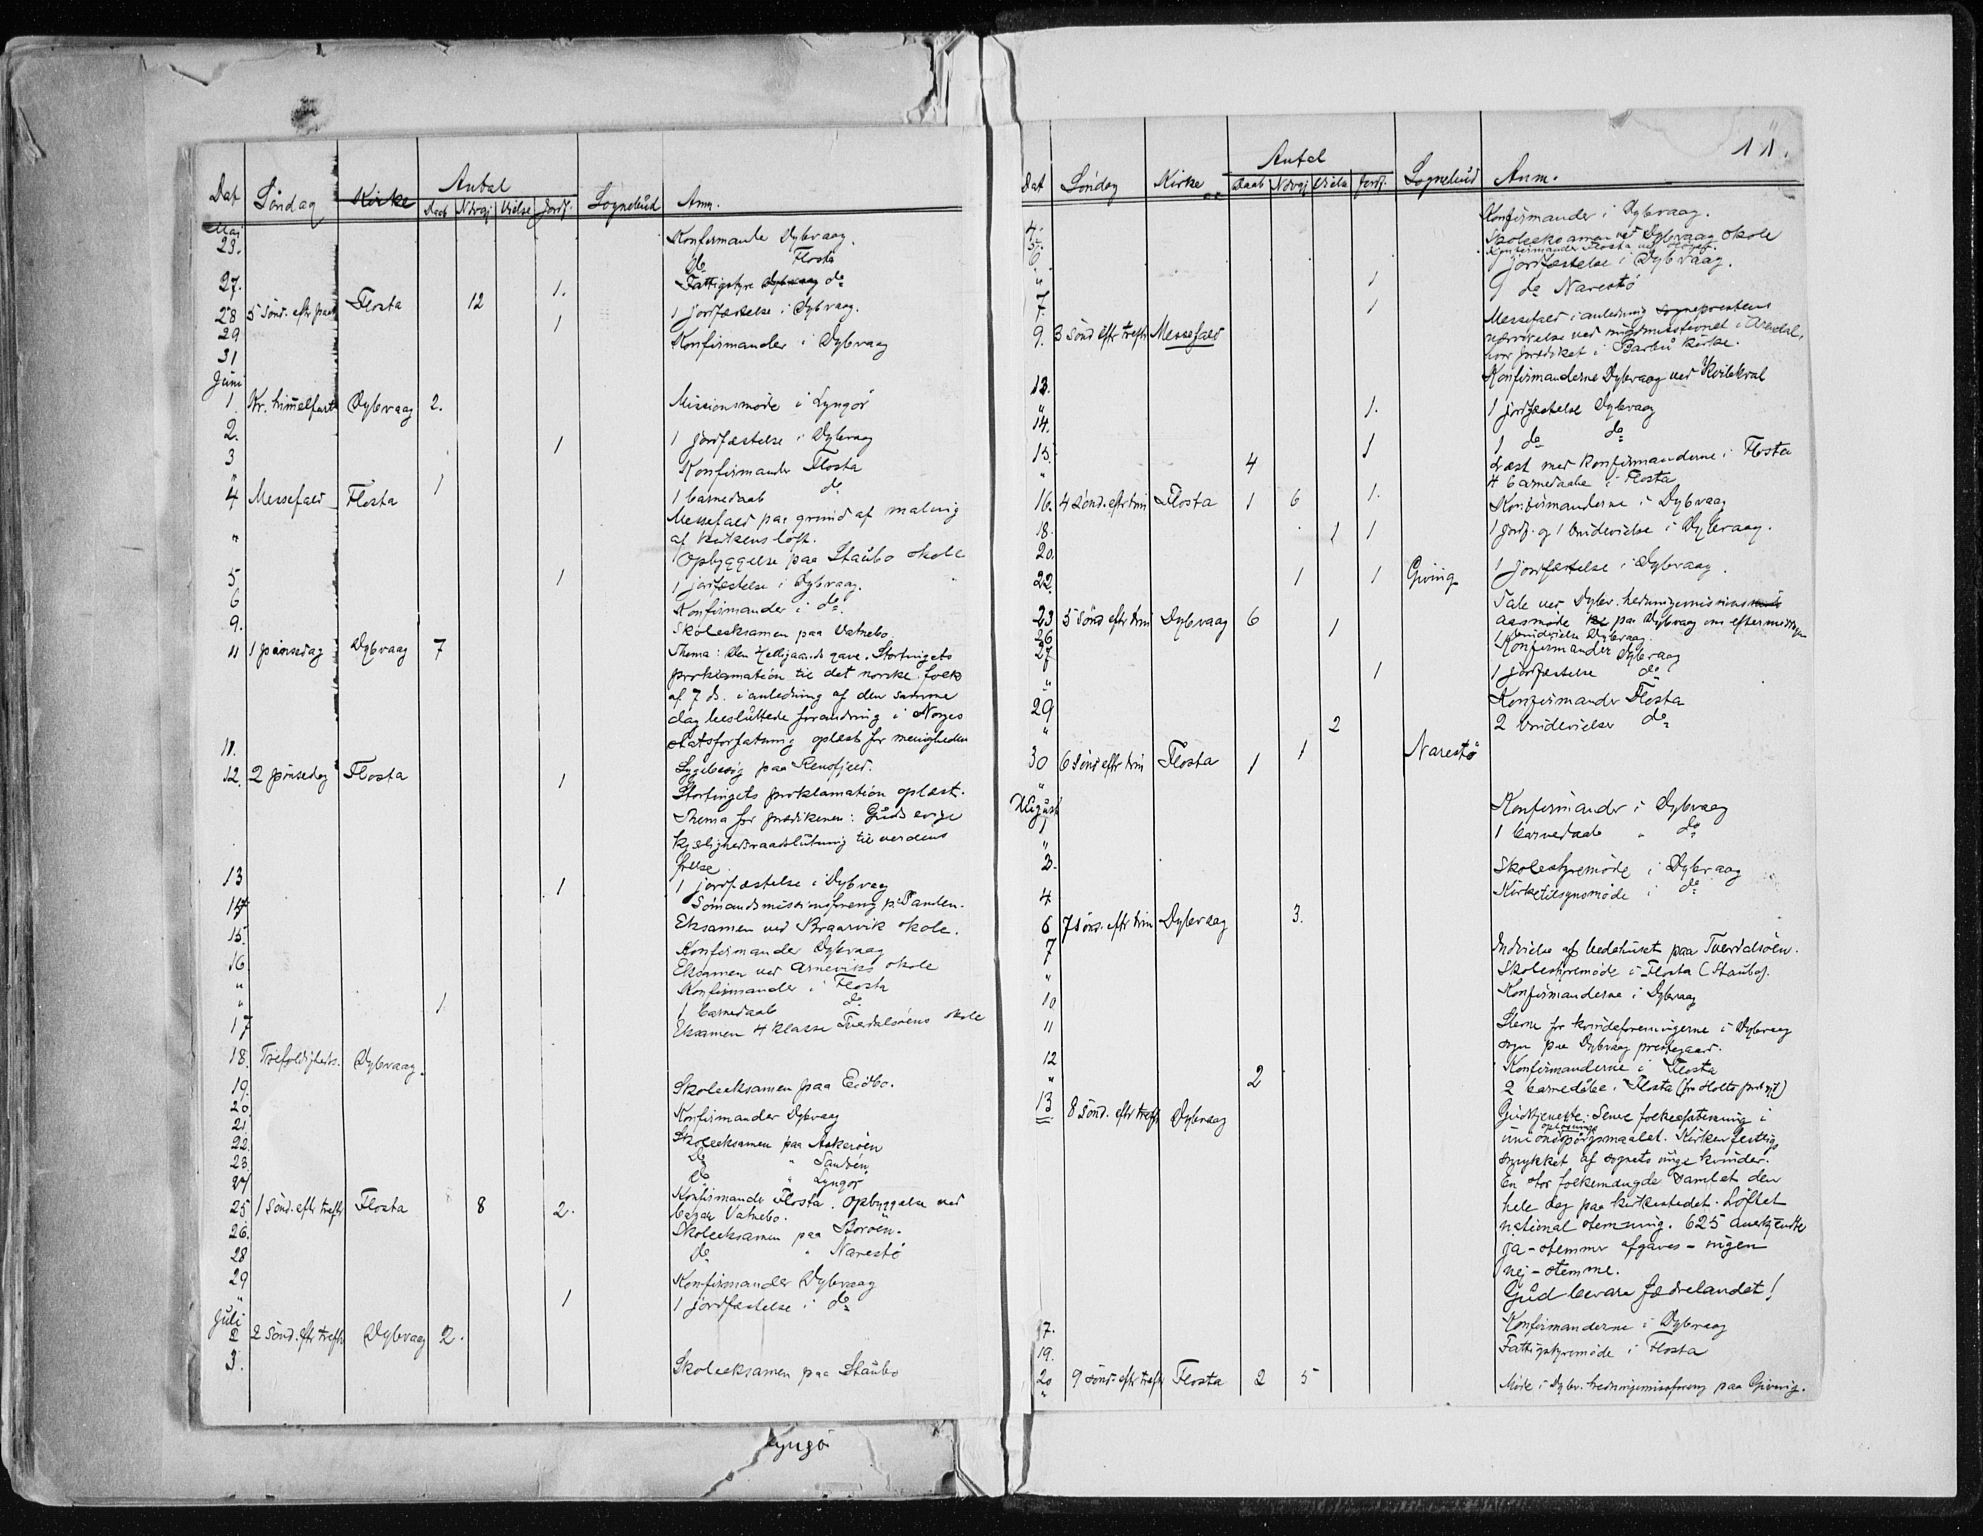 Antal
Dat Söndag Kirke Daab Ndvgj Vielse Jordf. Sognebud Anm.
Maj
23. Konfirmander Dybvaag.
do Flosta
27. 1. Fattigstyre Dybvaag do
28 5 Sönd. eftr paask Flosta 12 1 jordfæstelse i Dybvaag.
29 1
31 Konfirmander i Dybvaag
Juni
1. Kr. himmelfart Dybvaag 2. Missionsmöde i Lyngör
2. 1 1 jordfæstelse i Dybvaag
3 Konfirmander Flosta
" 1 1 barnedaab do
4 Messefald Flosta Messefald paa grund af maling
af kirkens loft.
" Opbyggelse paa Staubo skole
5. 1 1 jordfæstelse i Dybvaag.
6 Konfirmander i do.
9. Skoleeksamen paa Vatnebo.
11 1 pinsedag Dybvaag 7 Thema: Den Helligaands gave. Stortingets
proklamation til det norske folk
af 7 ds. i anledning af den samme
dag besluttede forandring i Norges
statsforfatning oplæst for menigheden
11. Sygebesög paa Rensfjeld.
12. 2 pinsedag Flosta 1 Stortingets proklamation oplæst.
Thema for prædikenen: Guds evige
kjærlighedsraadslutning til verdens
frelse.
13 1 1 jordfæstelse i Dybvaag
14 Sömandsmissionsforeng p. Panden.
15. Eksamen ved Braarvik skole.
Konfirmander Dybvaag
16 Eksamen ved Arneviks skole
" Konfirmander i Flosta
" 1 1 barnedaab do
17 Eksamen 4 klasse Tverdalsöens skole
18. Trefoldigheds. Dybvaag.
19. Skoleeksamen paa Eidbo.
20. Konfirmander Dybvaag
21. Skoleeksamen paa Askeröen
22. do " Sandöen
23. do " Lyngör
24 Konfirmander Flosta. Opbyggelse ved
25 1 Sönd. eftr trefh Flosta 8 2. Vatnebo.
26. Skoleeksamen paa Boröen.
28 do " Narestö
29 Konfirmander Dybvaag
" 1 1 jordfæstelse i do
Juli
2 2 Sönd. eftr trefh Dybvaag 2.
3. Skoleeksamen paa Staubo
Lyngö
11.
Antal
Dat Söndag Kirke Daab Ndvgj Vielse Jordf. Sognebud Anm.
4. Konfirmander i Dybvaag.
5. Skoleeksamen ved Dybvaag skole
Konfirmander Flosta
6 1 jordfæstelse i Dybvaag.
" 1 1 do Narestö
7. 1
9. 3 Sönd eftr trefh Messefald Messefald i anledning sogneprestens
nærværelse ved i Arendal,
hvor prædiket i Barbu kirke.
13. Konfirmanderne Dybvaag ved
" 1. 1 jordfæstelse Dybvaag
14. 1 1 do do
15. Læst med konfirmanderne i Flosta
" 4 4 barnedaabe i Flosta
16. 4 Sönd. eftr trin Flosta 1 6 1. Konfirmanderne i Dybvaag
18. 1 1 1 jordf. og 1 brudevielse i Dybvaag.
20.
22. 1 1 Gjving 1 jordfæstelse i Dybvaag.
23 5 Sönd eftr trin Dybvaag 6 Tale ved Dybv. hedningemissions
aarsmöde paa Dybvaag om eftermiddagen
26 1 1 brudevielse Dybvaag.
27 Konfirmander Dybvaag
" 1 1 jordfæstelse do
29 Konfirmander Flosta
" 2 2 brudevielser do
30 6 Sönd eftr trin Flosta 1 1 Narestö
August
1 Konfirmander i Dybvaag
" 1 barnedaab " do
2. Skolestyremöde i Dybvaag
4 Kirketilsynsmöde i do
6 7 Sönd. eftr trin Dybvaag 3.
7 Indvielse af bedehuset paa Tverdalsöen.
" Skolestyremöde i Flosta (Staubo).
10 Konfirmanderne i Dybvaag
11 Stevne for kvindeforeningerne i Dybvaag
sogn paa Dybvaag prestegaard.
12 Konfirmanderne i Flosta
" 2 2 barnedaabe i Flosta (fra Holts prestgj)
13 8 Sönd. eftr trefh Dybvaag Gudstjeneste. Senere folkeafstemning i
unionsoplösningsspörgsmaalet. Kirken festlig
smykket af sognets unge kvinder.
En stor folkemængde samlet den
hele dag paa kirkestedet. Löftet
national stemning. 625
ja-stemmer afgaves - ingen
nej-stemme.
Gud bevare fædrelandet!
17. Konfirmanderne i Dybvaag
19. Fattigstyremöde i Flosta
20 9 Sönd. eftr trefh Flosta 2 5
" Möde i Dybv. hedningemissforeng paa Gjving.